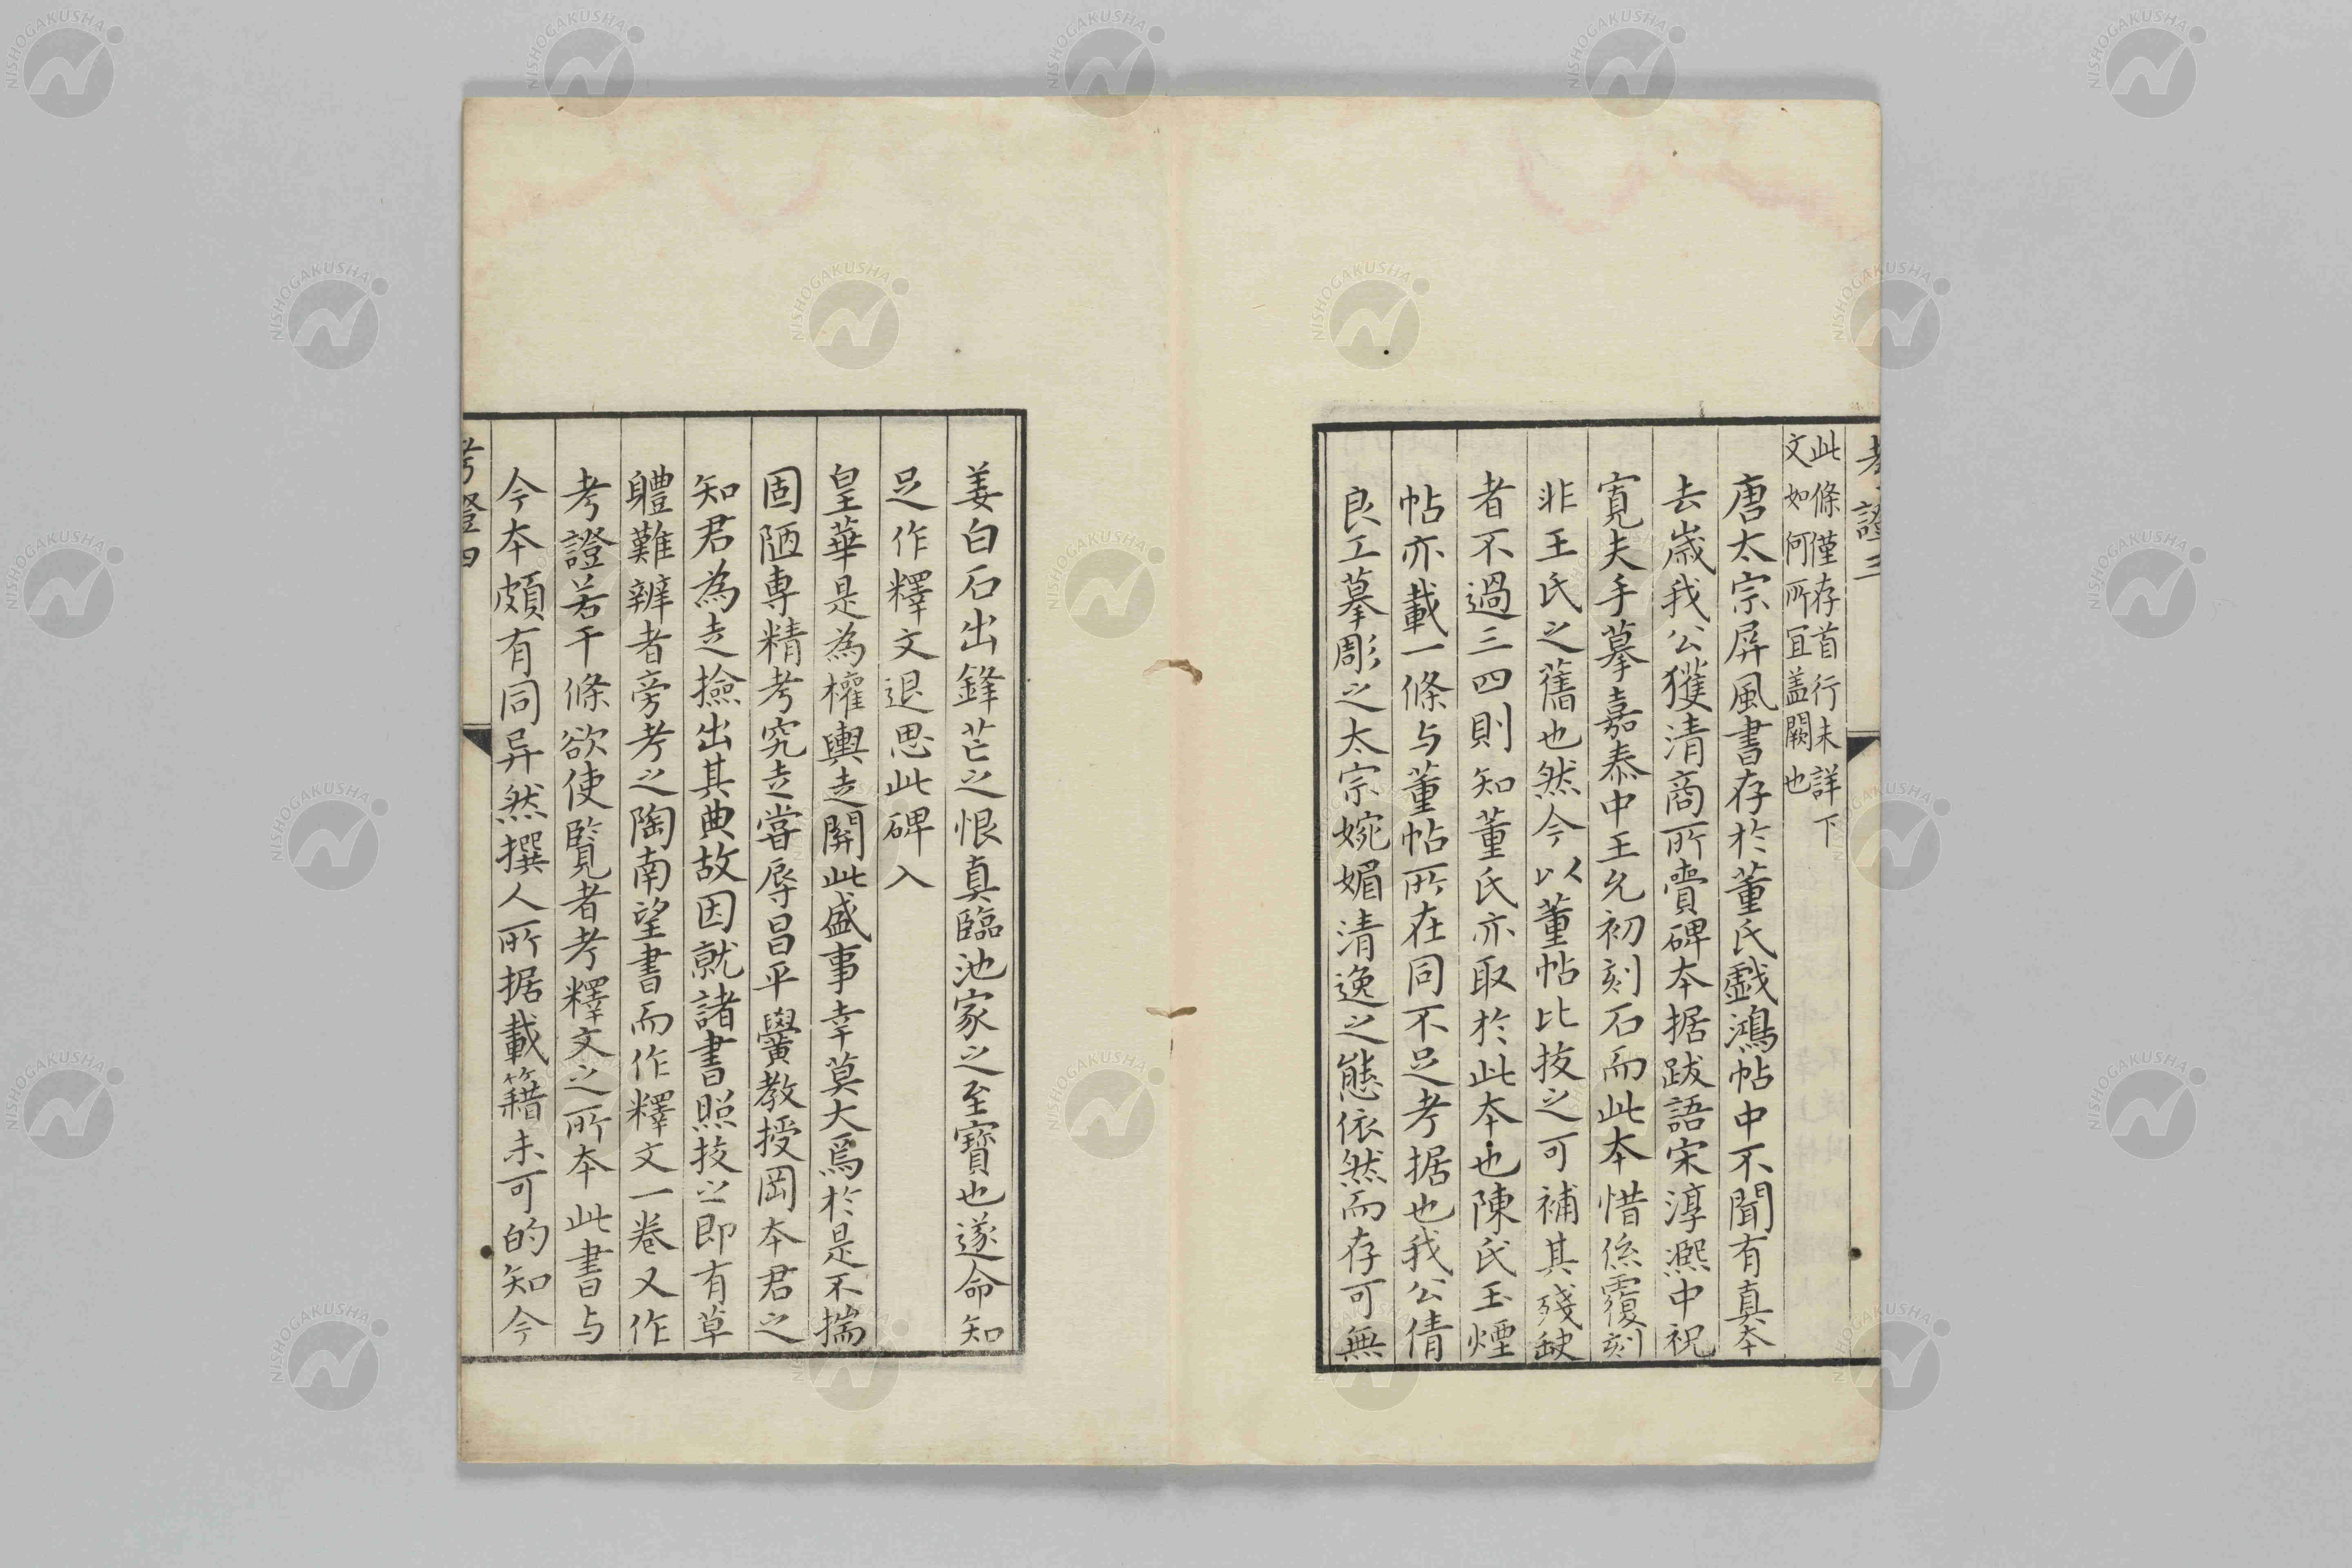 考證三
此條僅存首行未詳下
文如何所冝盖闕也
唐太宗屏風書存於董氏戲鴻帖中不聞有真本
去歳我公獲清商所賣碑本据跋語宋淳熙中祝
寬夫手摹嘉泰中王允初刻石而此本惜係覆刻
非王氏之舊也然今以董帖比挍之可補其殘缺
者不過三四則知董氏亦取於此本也陳氏玉煙
帖亦載一條与董帖所在同不足考据也我公倩
良工摹彫之太宗婉媚清逸之態依然而存可無
姜白石出鋒芒之恨真臨池家之至寶也遂命知
足作釋文退思此碑入
皇華是為權輿走關此盛事幸莫大焉於是不揣
固陋専精考究走嘗辱昌平黌教授岡本君之
知君為走撿出其典故因就諸書照挍之即有草
軆難辨者旁考之陶南望書而作釋文一巻又作
考證若干條欲使覧者考釋文之所本此書与
今本頗有同异然撰人所据載籍未可的知今
考證四
NISHOGAKUSHA